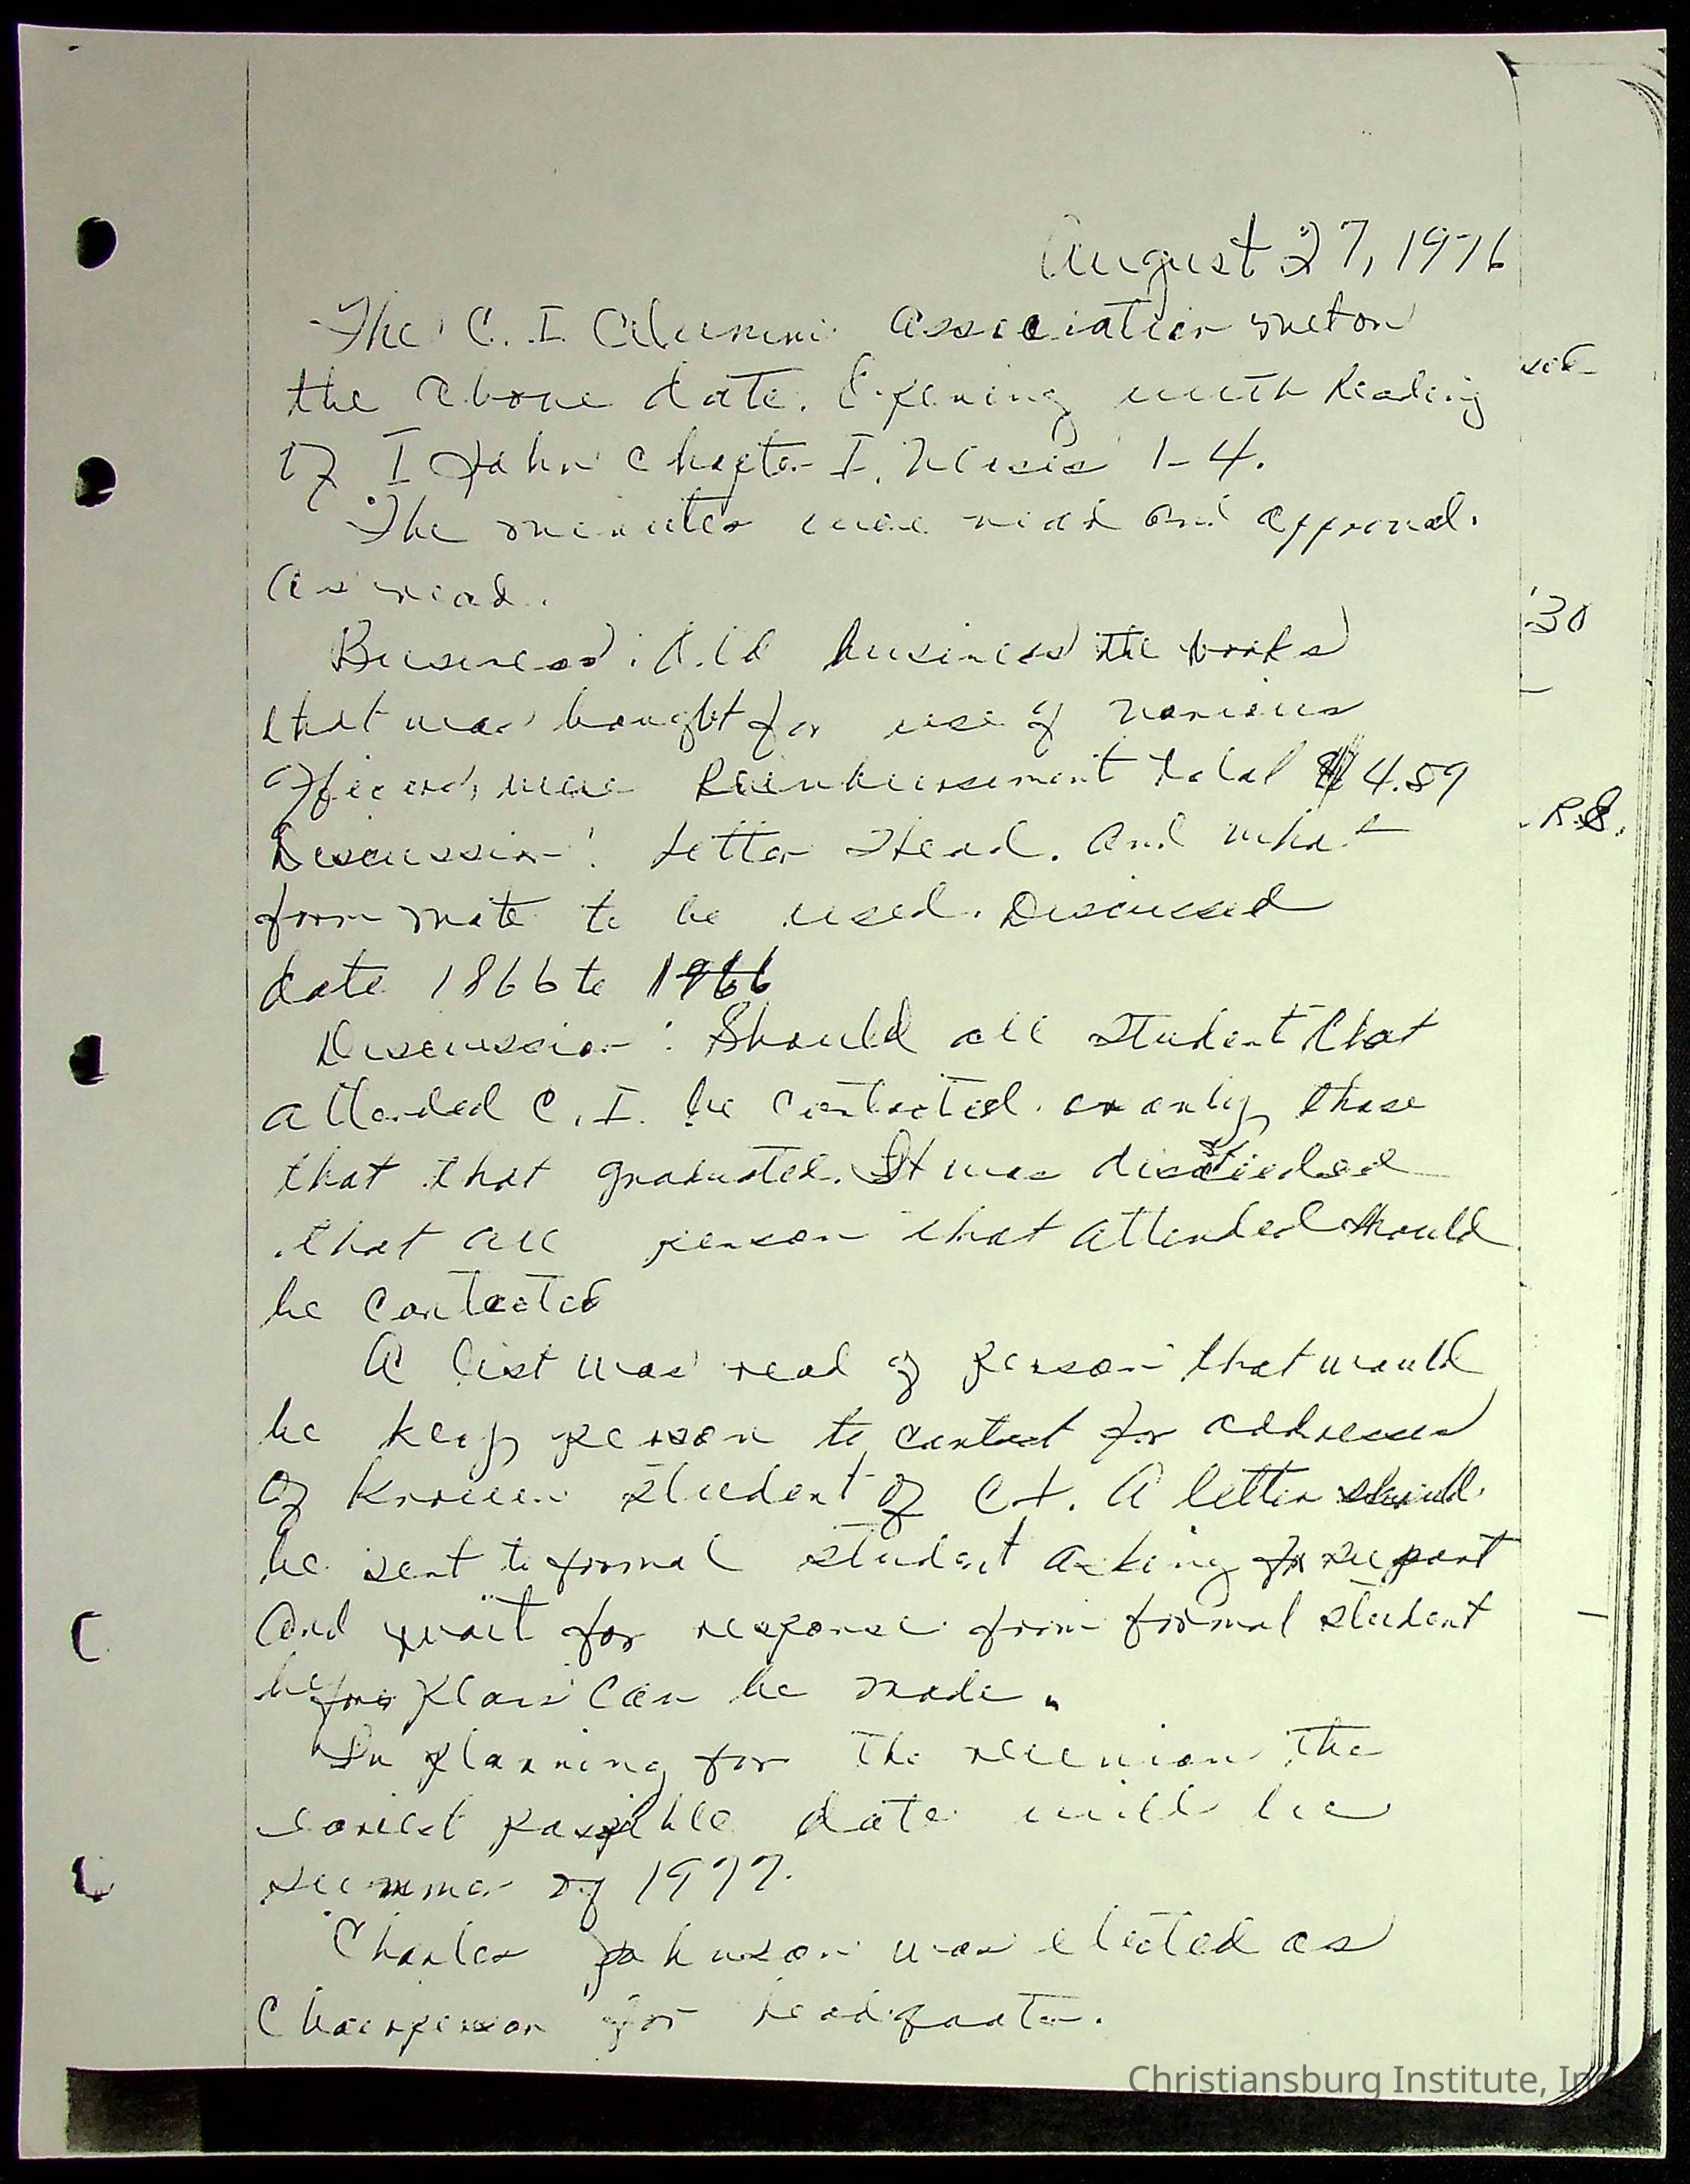 August 27, 1976
The C. I. Alumni Association met on
the above date. Opening with Reading
of I John Chapter I, Verses 1-4.
The minutes were read and approved.
as read.
Business: Old business the books
that was bought for use of various
officers, were Reimbursement total $4.59
Discussion: Letter Head. And what
formate to be used. Discussed
date 1866 to 1966
Discussion: Should all student that
attended C. I. be contacted or only those
that that graduated. It was
that all person that attended should
be contacted
A list was read of person that would
be key person to contact for addresses
of known student of C I. A letter should
be sent to formal student asking for support
and wait for response from formal student
before plans can be made.
In planning for the reunion the
earliest possible date will be
summer of 1977.
Charles Johnson was elected as
Chairperson for headquater.
30
R.S.
Christiansburg Institute, Inc